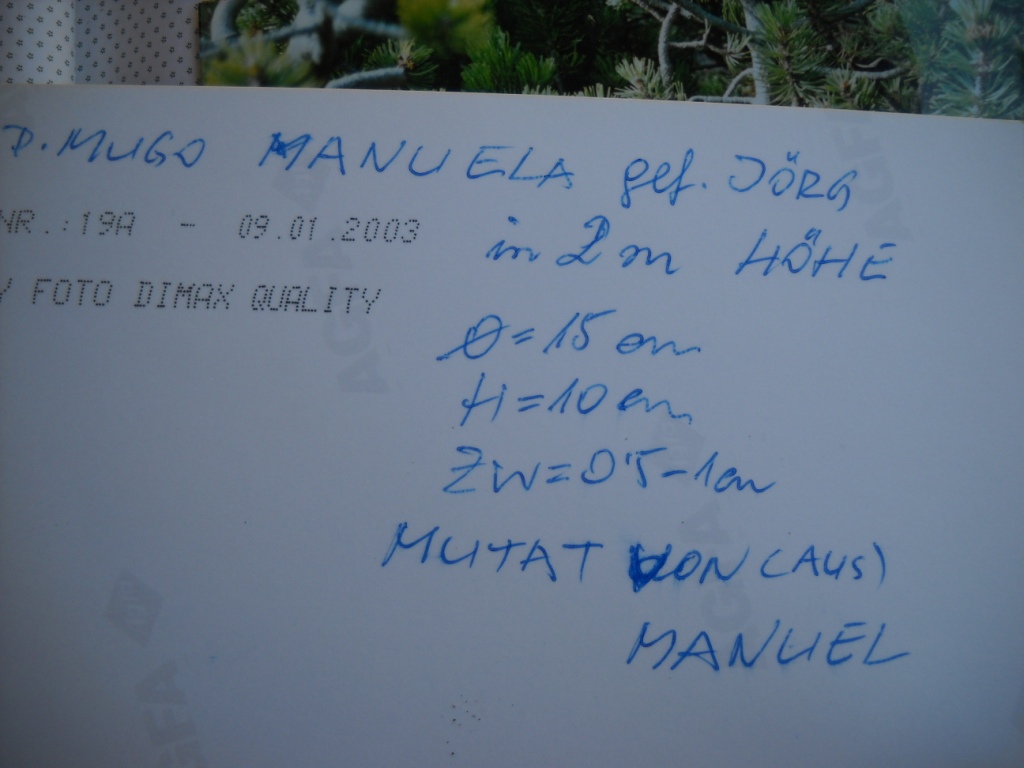 P. MUGO MANUELA gef. JÖRG
NR.:19A - 09.01.2003
in 2 m HÖHE
Y FOTO DIMAX QUALITY
Ø = 15 cm
H = 10 cm
ZW = 0'5 - 1 cm
MUTAT VON (AUS)
MANUEL
AGFA
AGFA
AGFA
AGFA